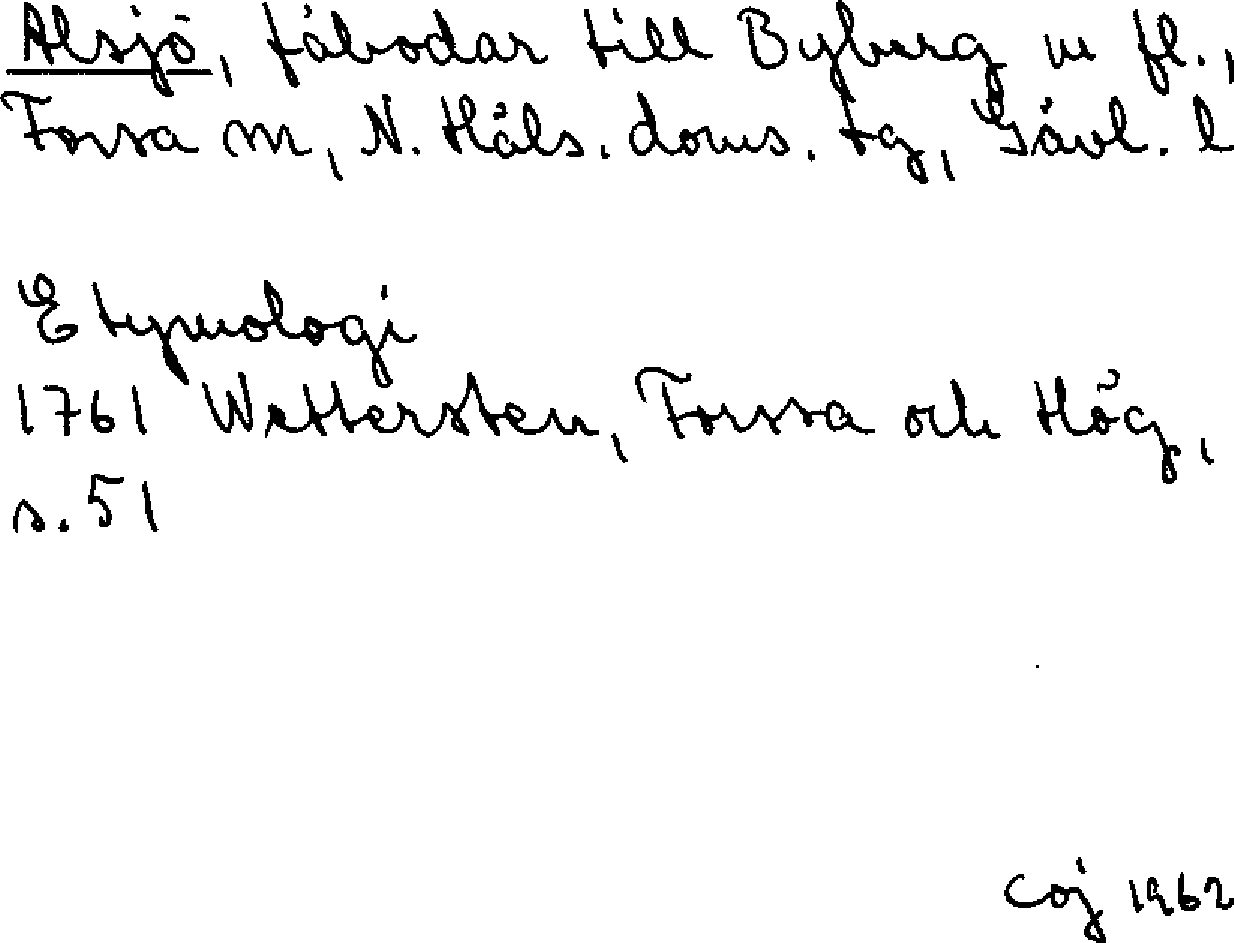 Alsjö, fäbodar till Byberg m fl.,
Forsa sn, N. Häls. doms. tg, Gävl. l
Etymologi
1761 Wettersten, Forssa och Hög,
s. 51
coj 1962